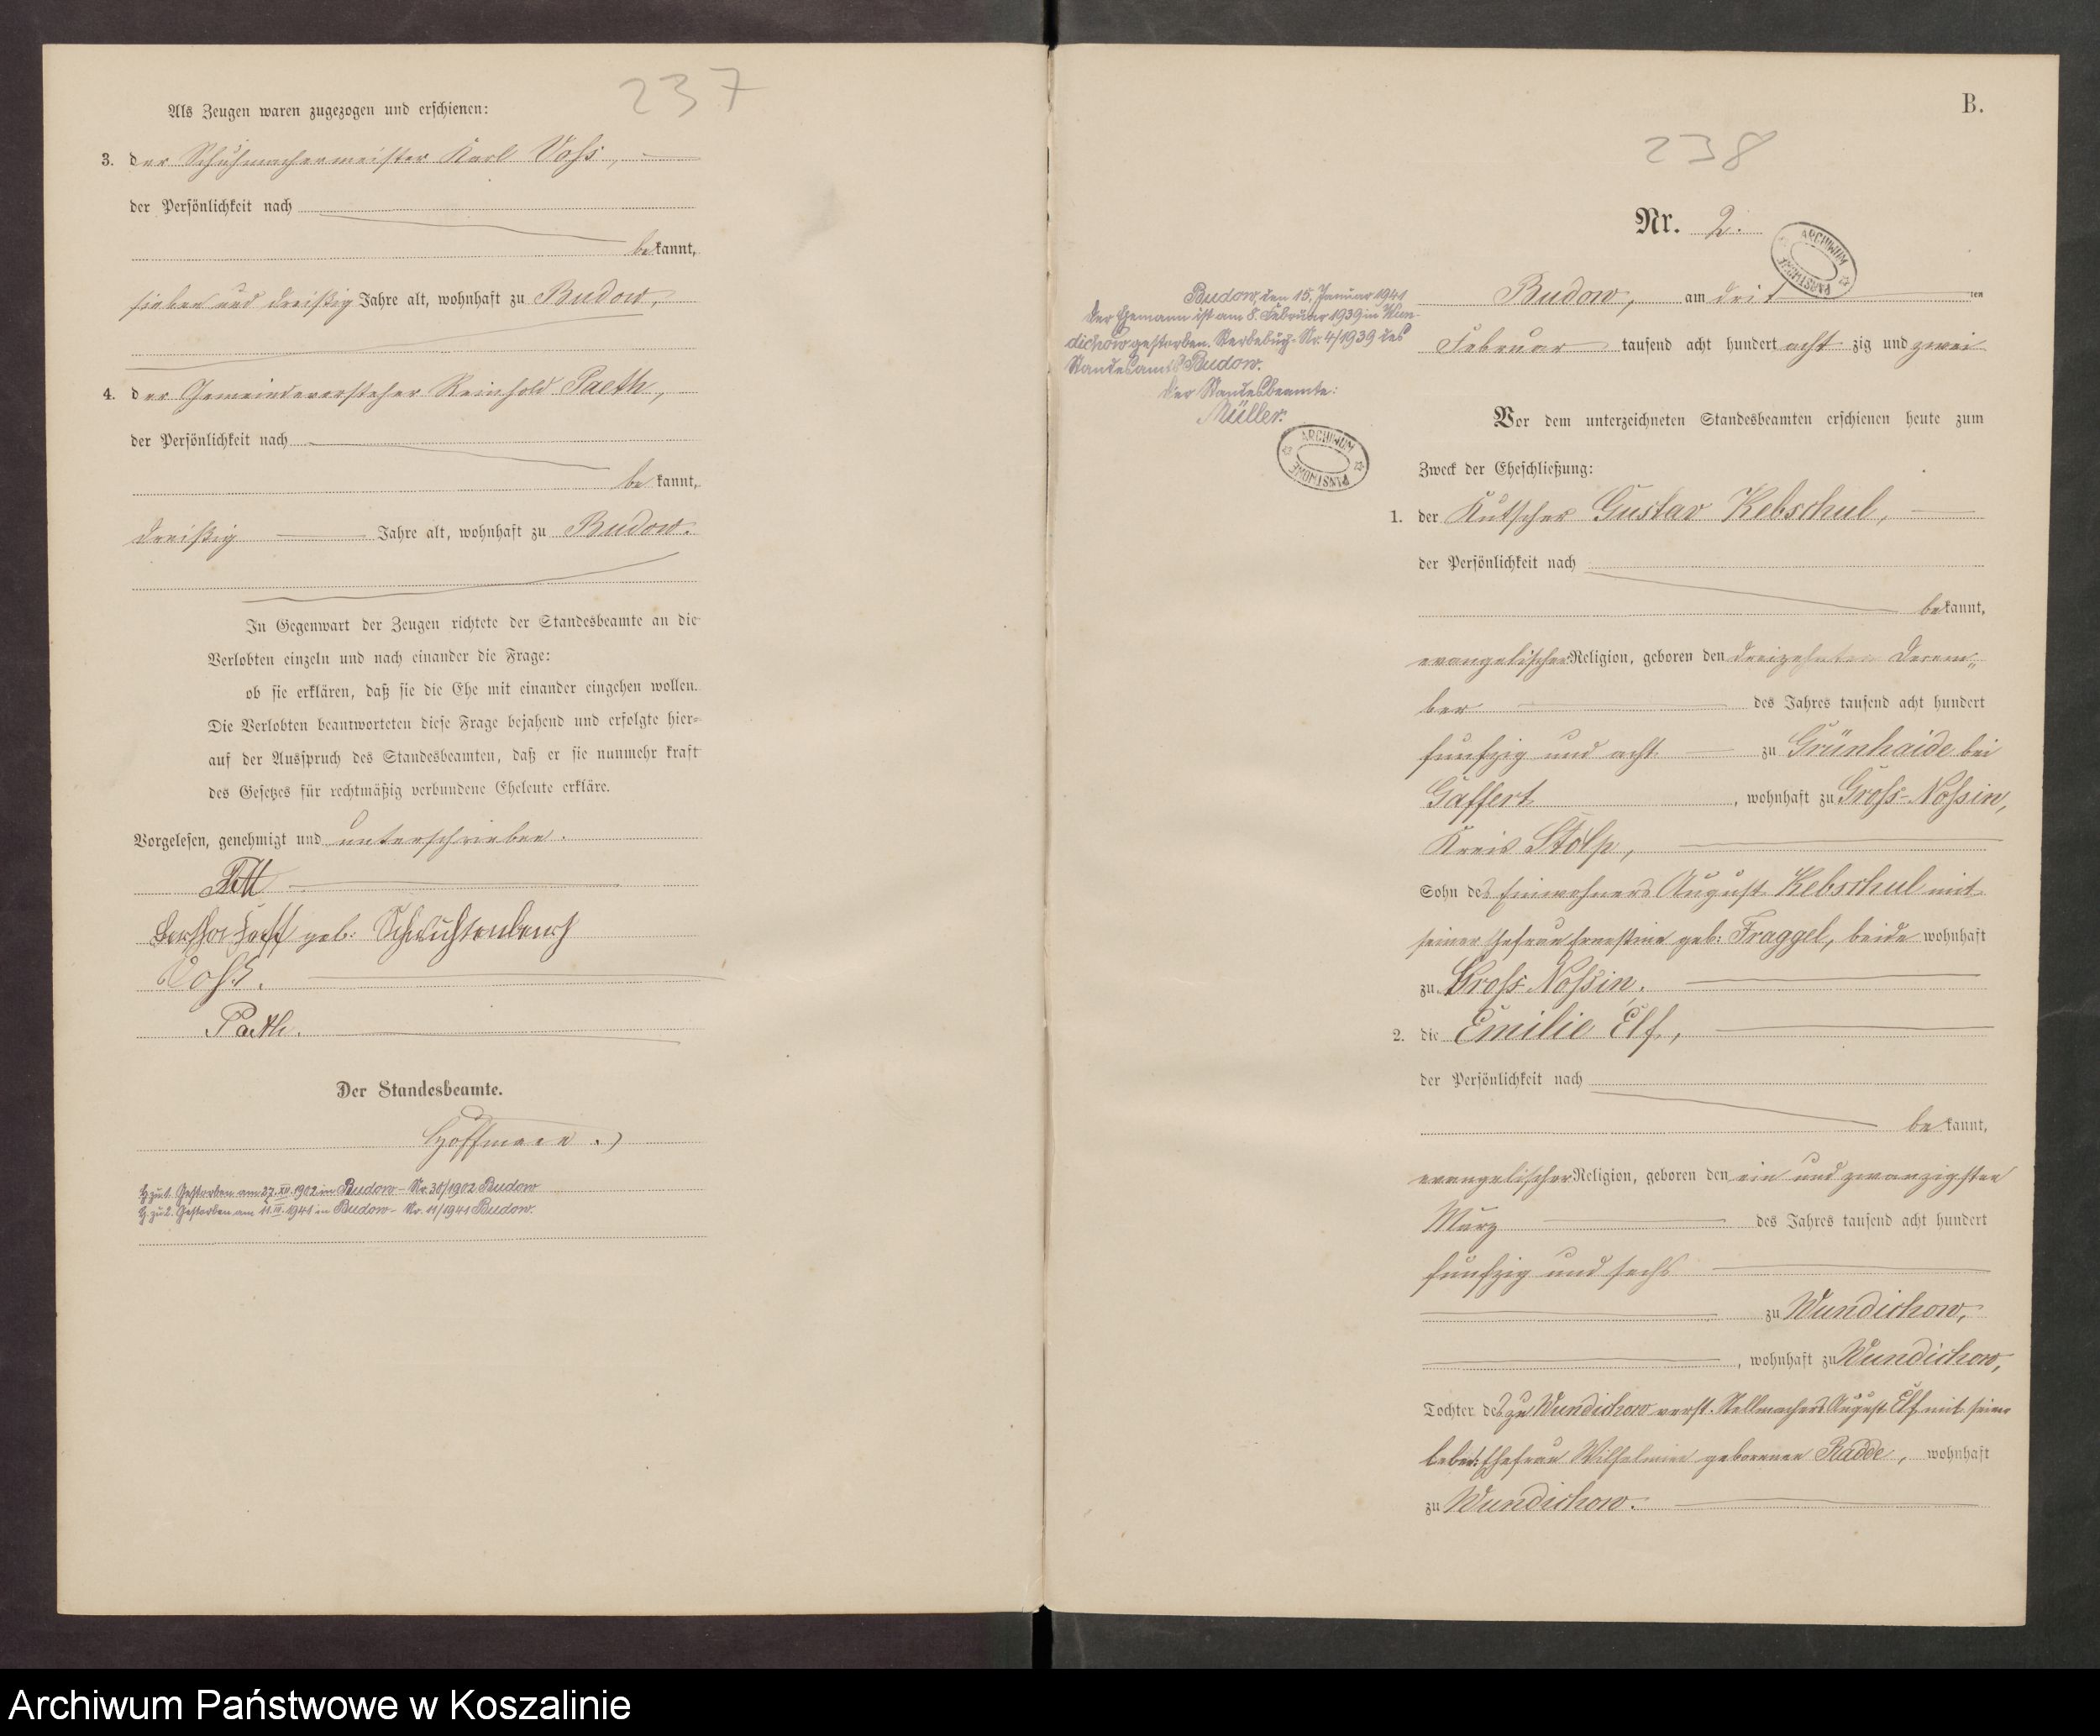 237
Als Zeugen waren zugezogen und erschienen:
3. der Schuhmachermeister Karl Voß,
der Persönlichkeit nach
bekannt,
sieben und dreißig Jahre alt, wohnhaft zu Budow,
4. der Gemeindevorsteher Reinhold Paeth,
der Persönlichkeit nach
bekannt,
dreißig Jahre alt, wohnhaft zu Budow.
In Gegenwart der Zeugen richtete der Standesbeamte an die
Verlobten einzeln und nach einander die Frage:
ob sie erklären, daß sie die Ehe mit einander eingehen wollen.
Die Verlobten beantworteten diese Frage bejahend und erfolgte hier=
auf der Ausspruch des Standesbeamten, daß er sie nunmehr kraft
des Gesetzes für rechtmäßig verbundene Eheleute erkläre.
Vorgelesen, genehmigt und unterschrieben.
geb:
Voß.
Paeth.
Der Standesbeamte.
Hoffmann.
H. zu 1. Gestorben am 27. XII. 1902 in Budow – Nr. 30/1902 Budow
H. zu 2. Gestorben am 11. III. 1941 in Budow – Nr. 11/1941 Budow.
B.
238
Nr. 2.
ARCHIWUM PAŃSTWOWE
Budow, am dritten
Februar tausend acht hundert acht zig und zwei
Budow, den 15. Januar 1941
Der Ehemann ist am 8. Februar 1939 in Wun-
dichow gestorben. Sterbebuch-Nr. 4/1939 des
Standesamts Budow.
Der Standesbeamte:
Müller.
ARCHIWUM PAŃSTWOWE
Vor dem unterzeichneten Standesbeamten erschienen heute zum
Zweck der Eheschließung:
1. der Kutscher Gustav Kebschul,
der Persönlichkeit nach
bekannt,
evangelischer Religion, geboren den dreizehnten Decem„
ber des Jahres tausend acht hundert
funfzig und acht zu Grünhaide bei
Gaffert, wohnhaft zu Groß-Noßin,
Kreis Stolp,
Sohn des Einwohners August Kebschul mit
seiner Ehefrau Ernestine geb: Fraggel, beide wohnhaft
zu Groß-Noßin.
2. die Emilie Elf,
der Persönlichkeit nach
bekannt,
evangelischer Religion, geboren den ein und zwanzigsten
März des Jahres tausend acht hundert
funfzig und sechs
zu Wundichow,
, wohnhaft zu Wundichow,
Tochter des zu Wundichow verst. Stellmachers August Elf mit seiner
Ehefrau Wilhelmine geborenen Radde, wohnhaft
zu Wundichow.
Archiwum Państwowe w Koszalinie